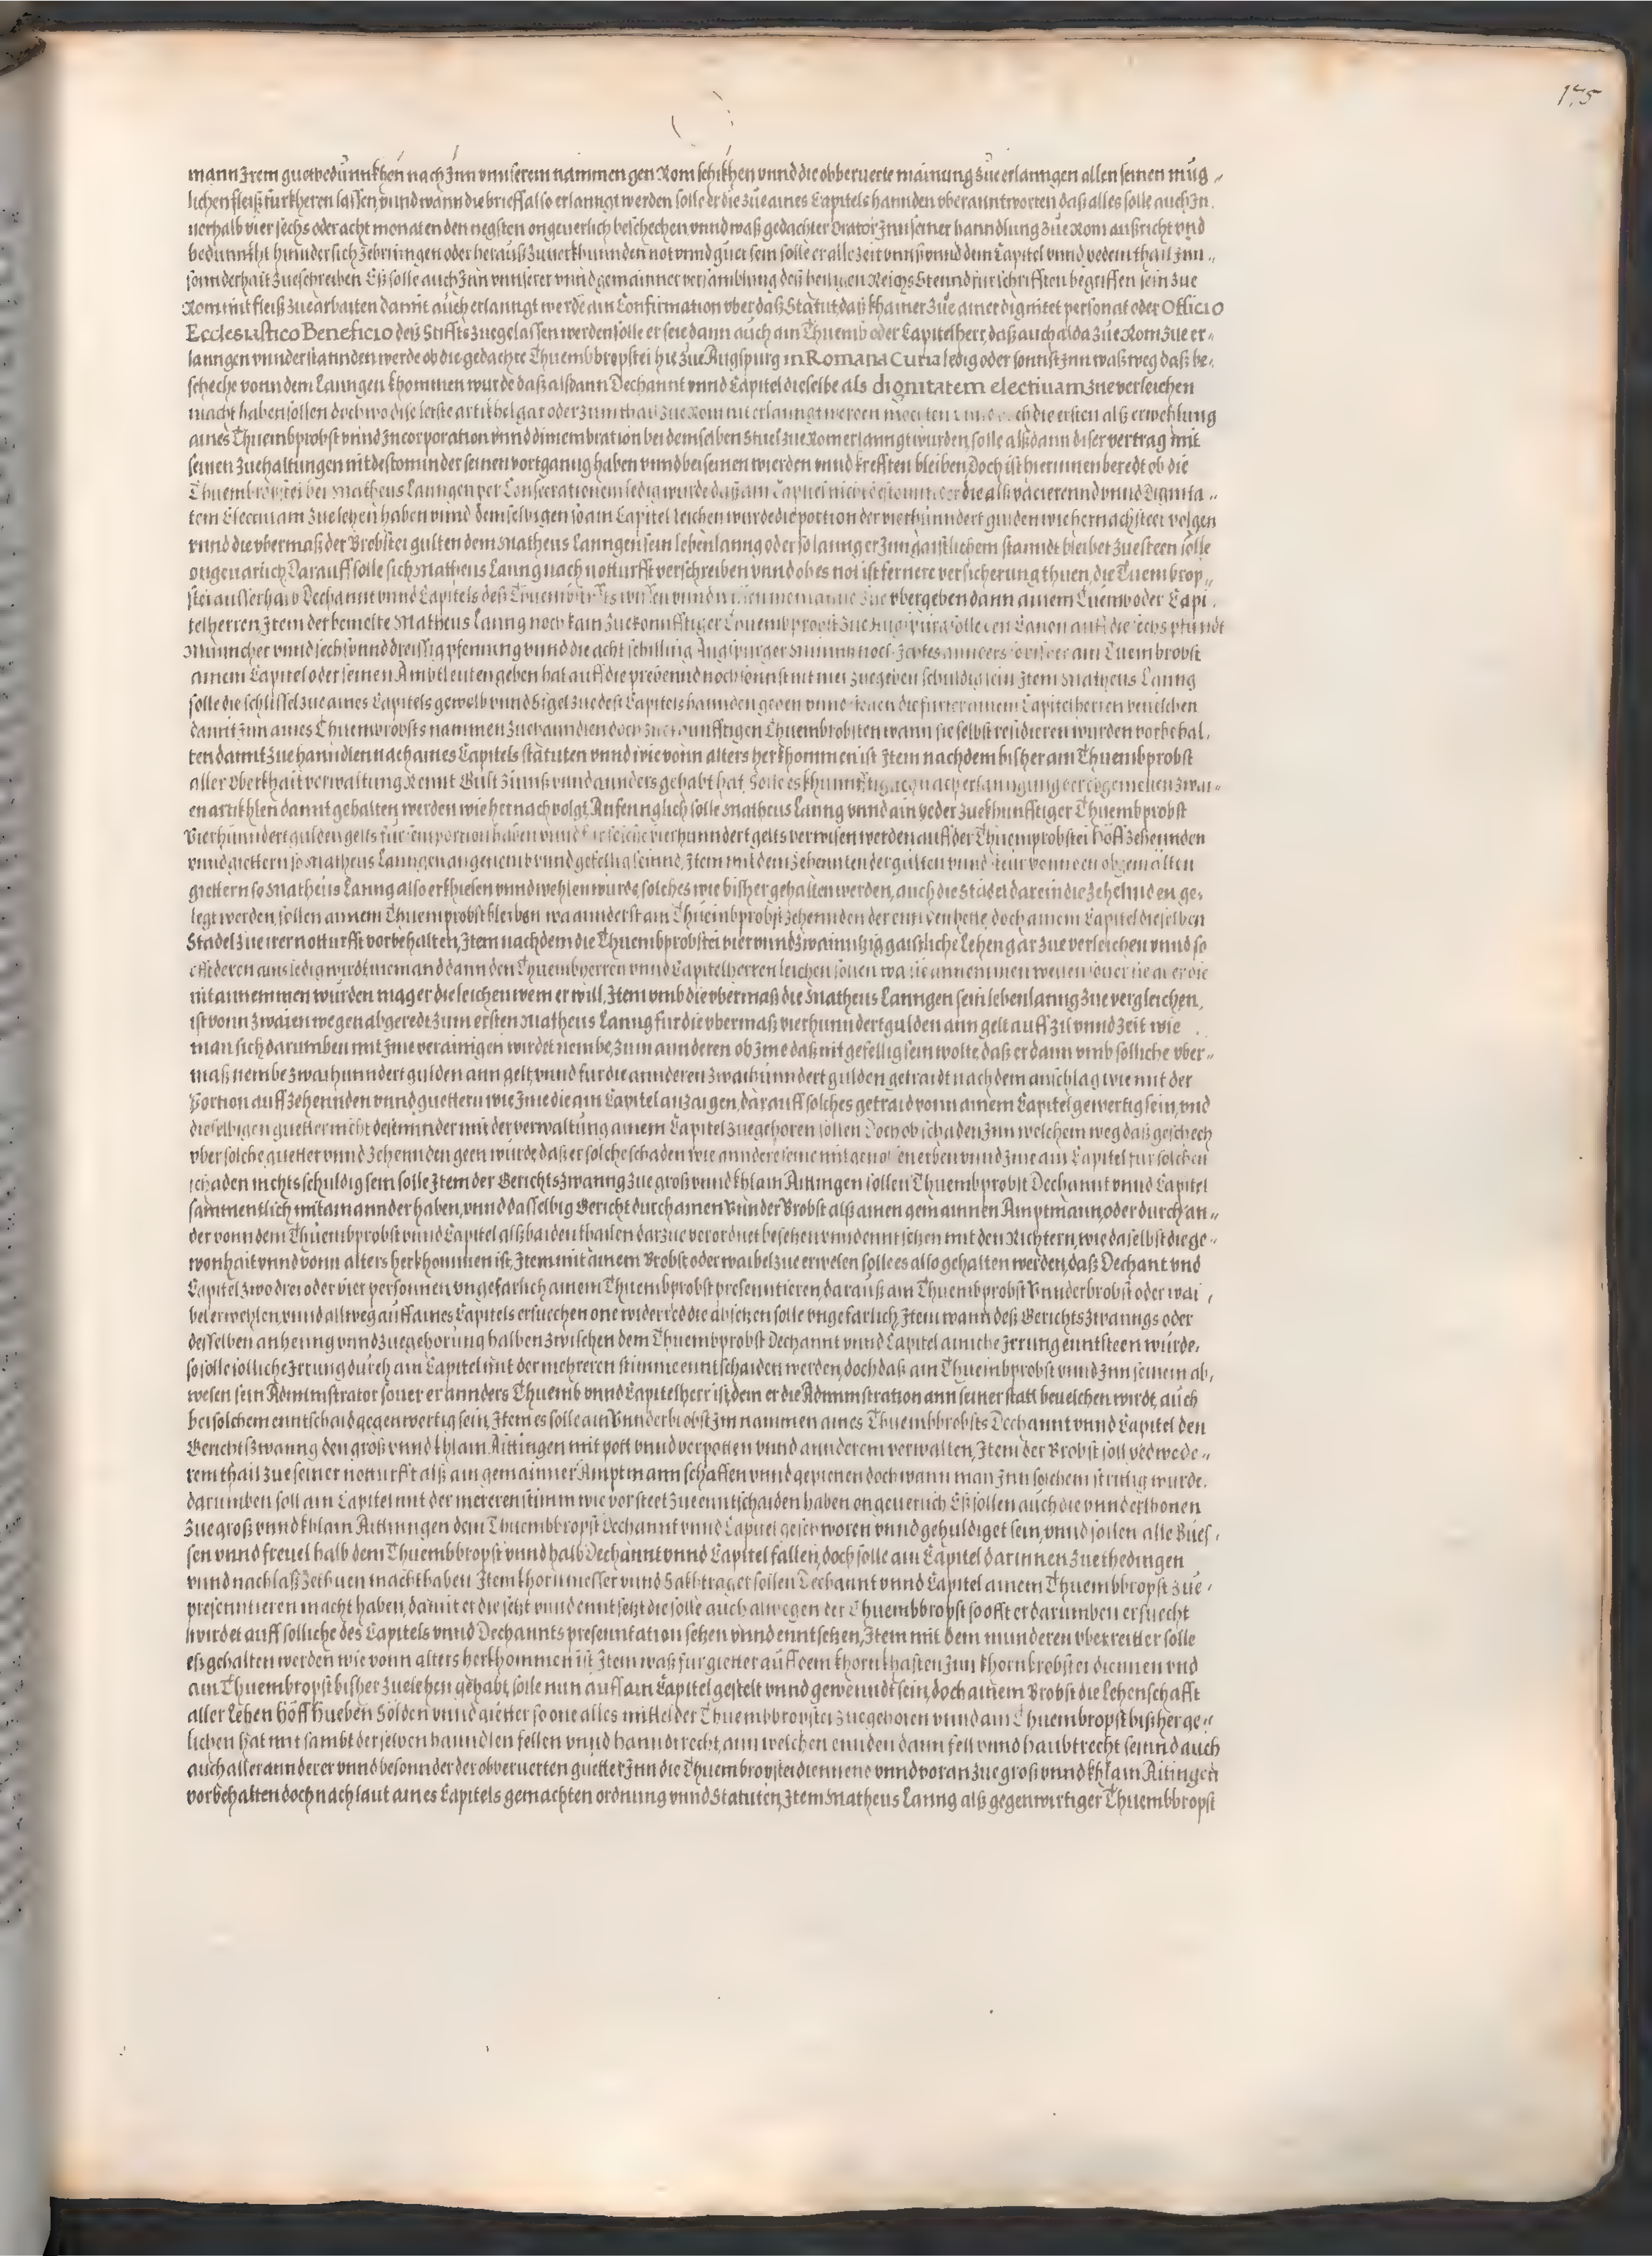 175
mann Jrem guetbedunnkhen nach Jnn vnnserem nammen gen Rom schikhen vnnd die obberuerte mainung zue erlanngen allen seinen müg-
lichen fleiß fürkheren lassen, vnnd wann die brieff also erlanngt werden solle er die zue aines Capitels hannden vberanntworten das alles solle auch Jn.
nerhalb vier sechs oder acht monaten den negsten ongeuerlich beschechen, vnnd waß gedachter Orator Jnn seiner hanndlung zue Rom außricht vnd
bedunnkht hinndersich zebringen oder herauß zuuerkhunnden not vnnd guet sein solle er alle zeit vnnß vnnd dem Capitel vnnd yedem thail Jnn-
sonnderhait zueschreiben Eß solle auch Jnn vnnserer vnnd gemainner versamblung deß heiligen Reichs Stennd fürschrifften begriffen sein zue
Rom mit fleiß zuearbaiten damit auch erlanngt werde ain Confirmation vber daß Statut, daß khainer zue ainer dignitet personat oder Officio
Ecclesiastico Beneficio deß Stiffts zuegelassen werden solle er seie dann auch ain Thuemb oder Capitelherr, daß auch alda zue Rom zue er-
lanngen vnnderstannden werde ob die gedachte Thuembbropstei hie zue Augspurg in Romana Curia ledig oder sonnst Jnn waß weg daß be-
scheche vonn dem Lanngen khommen wurde daß alßdann Dechannt vnnd Capitel dieselbe als dignitatem electiuam zue verleichen
macht haben sollen doch wo dise letste artikhel gar oder zum thail zue Rom nit erlanngt werden mochten die ersten alß erwehlung
aines Thuembprobst vnnd Incorporation vnnd dimembration bei demselben Stuel zue Rom erlanngt wurden, solle alßdann diser vertrag mit
seinen zuehaltungen nit destominder seinen vortganng haben vnnd bei seinen wierden vnnd krefften bleiben, Doch ist hierinnen beredt ob die
Thuembbropstei bei Matheus Lanngen per Consecrationem ledig wurde daß ain Capitel nicht destominder die alß vacierennd vnnd Dignita-
tem Electiuam zue leyhen haben vnnd demselbigen so ain Capitel leichen wurde die portion der vierhunndert gulden wie hernach steet volgen
vnnd die vbermaß der Brobstei gulten dem Matheus Lanngen sein lebenlanng oder so lanng er Jnn gaistlichem stanndt bleibet zuesteen solle
ongeuarlich, Darauff solle sich Matheus Lanng nach notturfft verschreiben vnnd ob es not ist fernere versicherung thuen, die Tuembrop-
stei ausserhalb Dechannt vnnd Capitels deß Thuembstiffts wissen vnnd willen niemannd zue vbergeben dann ainem Tuemb oder Capi.
telherren, Jtem der bemelte Matheus Lanng noch kain zuekonnfftiger Thuembprobst zue Augspurg solle den Canon auff die sechs pfundt
Münncher vnnd sechsunnddreissig pfenning vnnd die acht schilling Augspurger Münnß noch ain Tuembrobst
ainem Capitel oder seinen Ambtleuten geben hat auff die prebennd noch sonnst nit mer zuegeben schuldig sein Jtem Matheus Lanng
solle die schlüssel zue aines Capitels gewelb vnnd Sigel zue deß Capitels hannden geben die furter ainem Capitelherren beuelchen
damit Jnn aines Thuembrobsts nammen zuehanndlen doch zuekhunfftigen Thuembrobsten wann sie selbst residieren wurden vorbehal.
ten damit zue hanndlen nach aines Capitels statuten vnnd wie vonn alters herkhommen ist Jtem nachdem bisher ain Thuembprobst
aller Oberkhait verwaltung Rennt Gult Zinnß vnnd annders gehabt hat, Solle es khunnfftig nach erlanngung der obgemelten zwai-
en artikhlen damit gehalten werden wie hernach volgt, Anfennglich solle Matheus Lanng vnnd ain yeder zuekhunfftiger Thuembprobst
Vierhunndert gulden gelts für sein portion haben vnnd für solche vierhunndert gelts verwisen werden auff der Thuemprobstei Höff zehennden
vnnd giettern so Matheus Lanngen angenemb vnnd gefellig seinnd, Jtem mit dem zehennten der gülten vnnd steur vonn den obgemälten
giettern so Matheus Lanng also erkhiesen vnnd wehlen wurde, solches wie bißher gehalten werden, auch die Städel darein die zehennden ge-
legt werden, sollen ainem Thuemprobst bleiben wa annderst ain Thuembprobst zehennden der ennden hette, doch ainem Capitel dieselben
Stadel zue irer notturfft vorbehalten, Jtem nachdem die Thuembprobstei vier vnnd zwainntzig gaistliche Lehen gar zue verleichen vnnd so
offt deren ains ledig wirdt, niemand dann den Thuembherren vnnd Capitelherren leichen sollen wa sie annemmen wellen souer sie aber die
nit annemmen wurden mag er die leichen wem er will, Jtem vmb die vbermaß die Matheus Lanngen sein lebenlanng zue vergleichen,
ist vonn zwaien wegen abgeredt, zum ersten Matheus Lanng für die vbermaß vierhunndert gulden ann gelt auff zil vnnd zeit wie
man sich darumben mit Jme verainigen wirdet nembe, zum annderen ob Jme daß nit gefellig sein wolte, daß er dann vmb solliche vber-
maß nembe zwaihunndert gulden ann gelt, vnnd für die annderen zwaihunndert gulden getraidt nach dem anschlag wie mit der
Portion auff zehennden vnnd guettern wie Jme die ain Capitel anzaigen, darauff solches getraid vonn ainem Capitel gewertig sein, vnd
dieselbigen guetter nicht destminder mit der verwaltung ainem Capitel zuegehoren sollen Doch ob schaden Jnn welchem weg daß geschech
vber solche guetter vnnd zehennden geen wurde, daß er solche schaden wie anndere seine mitgenossen erben vnnd Jme ain Capitel für solchen
schaden nichts schuldig sein solle Jtem der Gerichtszwanng zue groß vnnd khlain Aittingen sollen Thuembprobst Dechannt vnnd Capitel
sammentlich mitainannder haben, vnnd dasselbig Gericht durch ainen Vnnder Brobst alß ainen gemainnen Amptmann, oder durch an-
der vonn dem Thuembprobst vnnd Capitel alß baiden thailen darzue verordnet besehen vnnd enntschen mit den Richtern, wie daselbst die ge-
wonhait vnnd vonn alters herkhommen ist, Jtem mit ainem Brobst oder waibel zue erwelen solle es also gehalten werden, daß Dechant vnd
Capitel zwo drei oder vier personnen vngefarlich ainem Thuembprobst presenntieren, darauß ain Thuembprobst Vnnderbrobst oder wai-
bel erwehlen, vnnd allweg auff aines Capitels ersuechen one widerred die absetzen solle vngefarlich Jtem wann deß Gerichtszwanngs oder
desselben anhenng vnnd zuegehorung halben zwischen dem Thuembprobst Dechannt vnnd Capitel ainiche Jrrung enntsteen wurde,
so solle solliche Jrrung durch ain Capitel mit der mehreren stimme enntschaiden werden, doch daß ain Thuembprobst vnnd Jnn seinem ab,
wesen sein Administrator souer er annders Thuemb vnnd Capitelherr ist, dem er die Administration ann seiner statt beuelchen wirdt, auch
bei solchem enntschaid gegenwertig sein, Jtem es solle ain Vnnderbrobst Jm nammen aines Thuembbrobsts Dechannt vnnd Capitel den
Gerichtßzwanng den groß vnnd khlain Aittingen mit pott vnnd verpotten vnnd annderem verwalten, Jtem der Brobst soll yedwede-
rem thail zue seiner notturfft alß ain gemainner Amptmann schaffen vnnd gepieten doch wann man Jnn solchem strittig wurde,
darumben soll ain Capitel mit der mereren stimm wie vorsteet zue enntschaiden haben ongeuerlich Eß sollen auch die vnnderthonen
zue groß vnnd khlain Aittingen dem Thuembbropst Dechannt vnnd Capitel geschworen vnnd gehuldiget sein, vnnd sollen alle Bues-
sen vnnd freuel halb dem Thuembbropst vnnd halb Dechannt vnnd Capitel fallen, doch solle ain Capitel darinnen zue thedingen
vnnd nachlaß zethuen macht haben Jtem khornmesser vnnd Sakhtrager sollen Dechannt vnnd Capitel ainem Thuembbropst zue-
presenntieren macht haben, damit er die setzt vnnd enntsetzt die solle auch alwegen der Thuembbropst so offt er darumben ersuecht
wirdet auff solliche des Capitels vnnd Dechannts presenntation setzen vnnd enntsetzen, Jtem mit dem minnderen vberreitter solle
eß gehalten werden wie vonn alters herkhommen ist Jtem waß für gietter auff dem khornkhasten Jnn khornbrobstei diennen vnd
ain Thuembropst bisher zuelehen gehabt, solle nun auff ain Capitel gestelt vnnd gewenndt sein, doch ainem Brobst die Lehenschafft
aller Lehen Höff Hueben Sölden vnnd gietter so one alles mittel der Thuembbropstei zuegehoren vnnd ain Thuembropst bißher ge-
lichen hat mit sambt derselben hanndlen fellen vnnd hanndtrecht, ann welchen ennden dann fell vnnd haubtrecht seinnd auch
auch aller annderer vnnd besonnder der obberuerten guetter Jnn die Thuembropstei diennend vnnd voran zue groß vnnd khlain Aitingen
vorbehalten doch nach laut aines Capitels gemachten ordnung vnnd Statuten, Jtem Matheus Lanng alß gegenwirtiger Thuembbropst